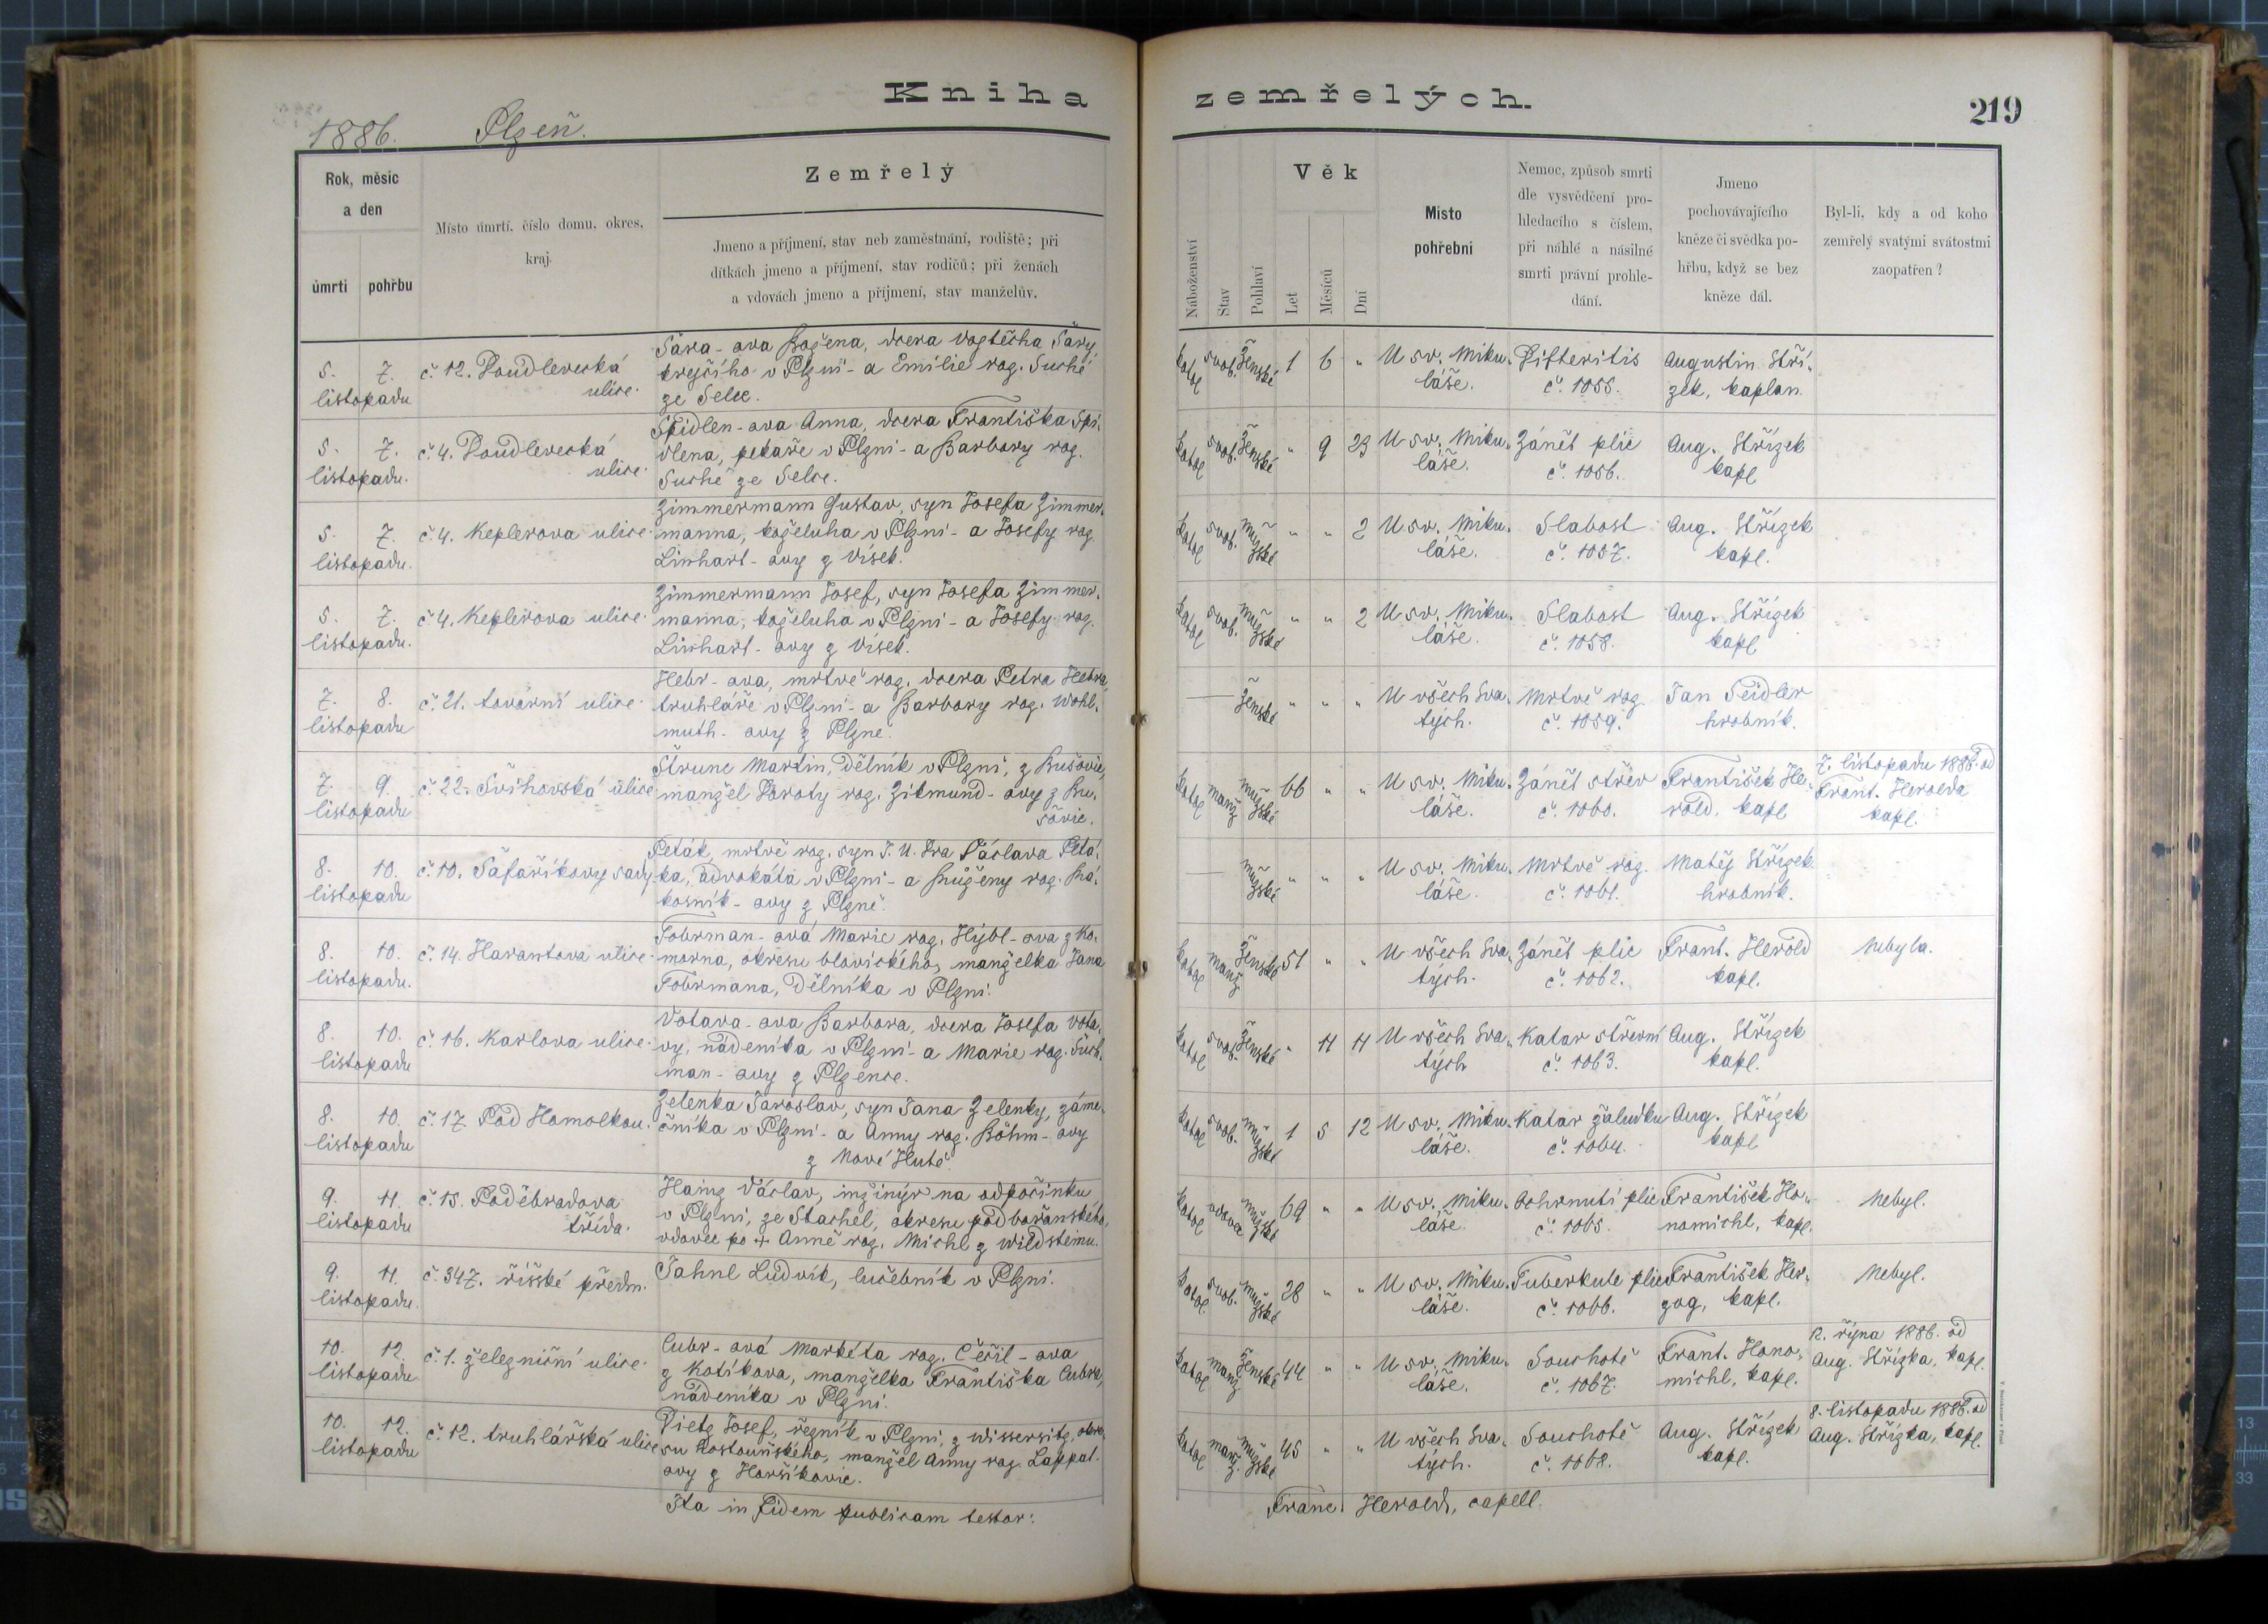 Kniha zemřelých.
219
1886. Plzeň.
Rok, měsíc
a den
úmrtí
pohřbu
Místo úmrtí, číslo domu, okres,
kraj.
Zemřelý
Jmeno a příjmení, stav neb zaměstnání, rodiště; při
dítkách jmeno a příjmení, stav rodičů; při ženách
a vdovách jmeno a příjmení, stav manželův.
Náboženství
Stav
Pohlaví
Věk
Let
Měsíců
Dní
Místo
pohřební
Nemoc, způsob smrti
dle vysvědčení pro-
hledacího s číslem,
při náhlé a násilné
smrti právní prohle-
dání.
Jmeno
pochovávajícího
kněze či svědka po-
hřbu, když se bez
kněze dál.
Byl-li, kdy a od koho
zemřelý svatými svátostmi
zaopatřen?
5. 7.
listopadu
č. 12. Doudlevecká
ulice.
Šára-ova Božena, dcera Vojtěcha Šáry,
krejčího v Plzni - a Emílie roz. Suché
ze Selce.
katol svob. ženské 1 6 "
U sv. Miku-
láše.
Difteritis
č. 1055.
Augustin Stří-
zek, kaplan.
5. 7.
listopadu.
č. 4. Doudlevecká
ulice.
Špidlen-ova Anna, dcera Františka Špi-
dlena, pekaře v Plzni - a Barbory roz.
Suché ze Selce.
katol svob. ženské " 9 23
U sv. Miku-
láše.
Zánět plic
č. 1056.
Aug. Střízek
kapl
5. 7.
listopadu.
č. 4. Keplerova ulice.
Zimmermann Gustav, syn Josefa Zimmer-
manna, koželuha v Plzni - a Josefy roz.
Linhart-ovy z Vísek.
katol svob. mužské " " 2
U sv. Miku-
láše.
Slabost
č. 1057.
Aug. Střízek
kapl.
5. 7.
listopadu.
č. 4. Keplerova ulice.
Zimmermann Josef, syn Josefa Zimmer-
manna, koželuha v Plzni - a Josefy roz.
Linhart-ovy z Vísek.
katol svob. mužské " " 2
U sv. Miku-
láše.
Slabost
č. 1058.
Aug. Střízek
kapl
7. 8.
listopadu
č. 21. tovární ulice.
Hebr-ova, mrtvě roz. dcera Petra Hebra,
truhláře v Plzni - a Barbory roz. Wohl-
muth-ovy z Plzně.
ženské " " "
U všech Sva-
tých.
Mrtvě roz.
č. 1059.
Jan Seidler
hrobník.
7. 9.
listopadu
č. 22. Švihovská ulice
Štrunc Martin, dělník v Plzni, z Bušovic,
manžel Doroty roz. Zikmund-ovy z Bu-
šovic.
katol manž mužské 66 " "
U sv. Miku-
láše.
Zánět střev
č. 1060.
František He-
rold, kapl
7. listopadu 1886. od
Frant. Herolda
kapl.
8. 10.
listopadu
č. 10. Šafaříkovy sady
Peták, mrtvě roz. syn J. U. Dra Václava Petá-
ka, advokáta v Plzni - a Růženy roz.
kosník-ovy z Plzně.
mužské " " "
U sv. Miku-
láše.
Mrtvě roz.
č. 1061.
Matěj Střízek
hrobník.
8. 10.
listopadu.
č. 14. Harantova ulice.
Tobrman-ová Marie roz. Hýbl-ova z Ko-
morna, okresu blovického, manželka Jana
Tobrmana, dělníka v Plzni.
katol manž ženské 51 " "
U všech Sva-
tých.
Zánět plic
č. 1062.
Frant. Herold
kapl.
Nebyla.
8. 10.
listopadu
č. 16. Karlova ulice.
Votava-ova Barbora, dcera Josefa Vota-
vy, nádeníka v Plzni - a Marie roz. Such-
man-ovy z Plzence.
katol svob. ženské " 11 11
U všech Sva-
tých
Katar střevní
č. 1063.
Aug. Střízek
kapl.
8. 10.
listopadu
č. 17. Pod Homolkou.
Zelenka Jaroslav, syn Jana Zelenky, záme-
čníka v Plzni - a Anny roz. Böhm-ovy
z Nové Hutě.
katol svob. mužské 1 5 12
U sv. Miku-
láše.
Katar žaludku
č. 1064.
Aug. Střízek
kapl
9. 11.
listopadu
č. 15. Poděbradova
třída.
Hainz Václav, inžinýr na odpočinku
v Plzni, ze Stachel, okresu podbořanského,
vdovec po + Anně roz. Michl z Wildsteinu.
katol vdovec mužské 69 " "
U sv. Miku-
láše.
Ochrnutí plic
č. 1065.
František Ho-
nomichl, kapl.
Nebyl.
9. 11.
listopadu.
č. 347. říšské předm.
Jahnl Ludvík, lučebník v Plzni.
katol. svob. mužské 28 " "
U sv. Miku-
láše.
Tuberkule plic
č. 1066.
František Her-
zog, kapl.
Nebyl.
10. 12.
listopadu
č. 1. železniční ulice.
Cubr-ová Markéta roz. Čeřil-ova
z Kotíkova, manželka Františka Cubra,
nádeníka v Plzni.
katol manž ženské 44 " "
U sv. Miku-
láše.
Souchotě
č. 1067.
Frant. Hono-
michl, kapl.
12. října 1886. od
Aug. Střízka, kapl.
10. 12.
listopadu
č. 12. truhlářská ulice
Dietz Josef, řezník v Plzni, z Wissersitz, okre-
su hostouňského, manžel Anny roz. Lappat-
ovy z Horšíkovic.
katol manž. mužské 45 " "
U všech Sva-
tých.
Souchotě
č. 1068.
Aug. Střízek
kapl.
8. listopadu 1886. od
Aug. Střízka, kapl.
Ita in fidem publicam testor:
Franc. Herold, capell.